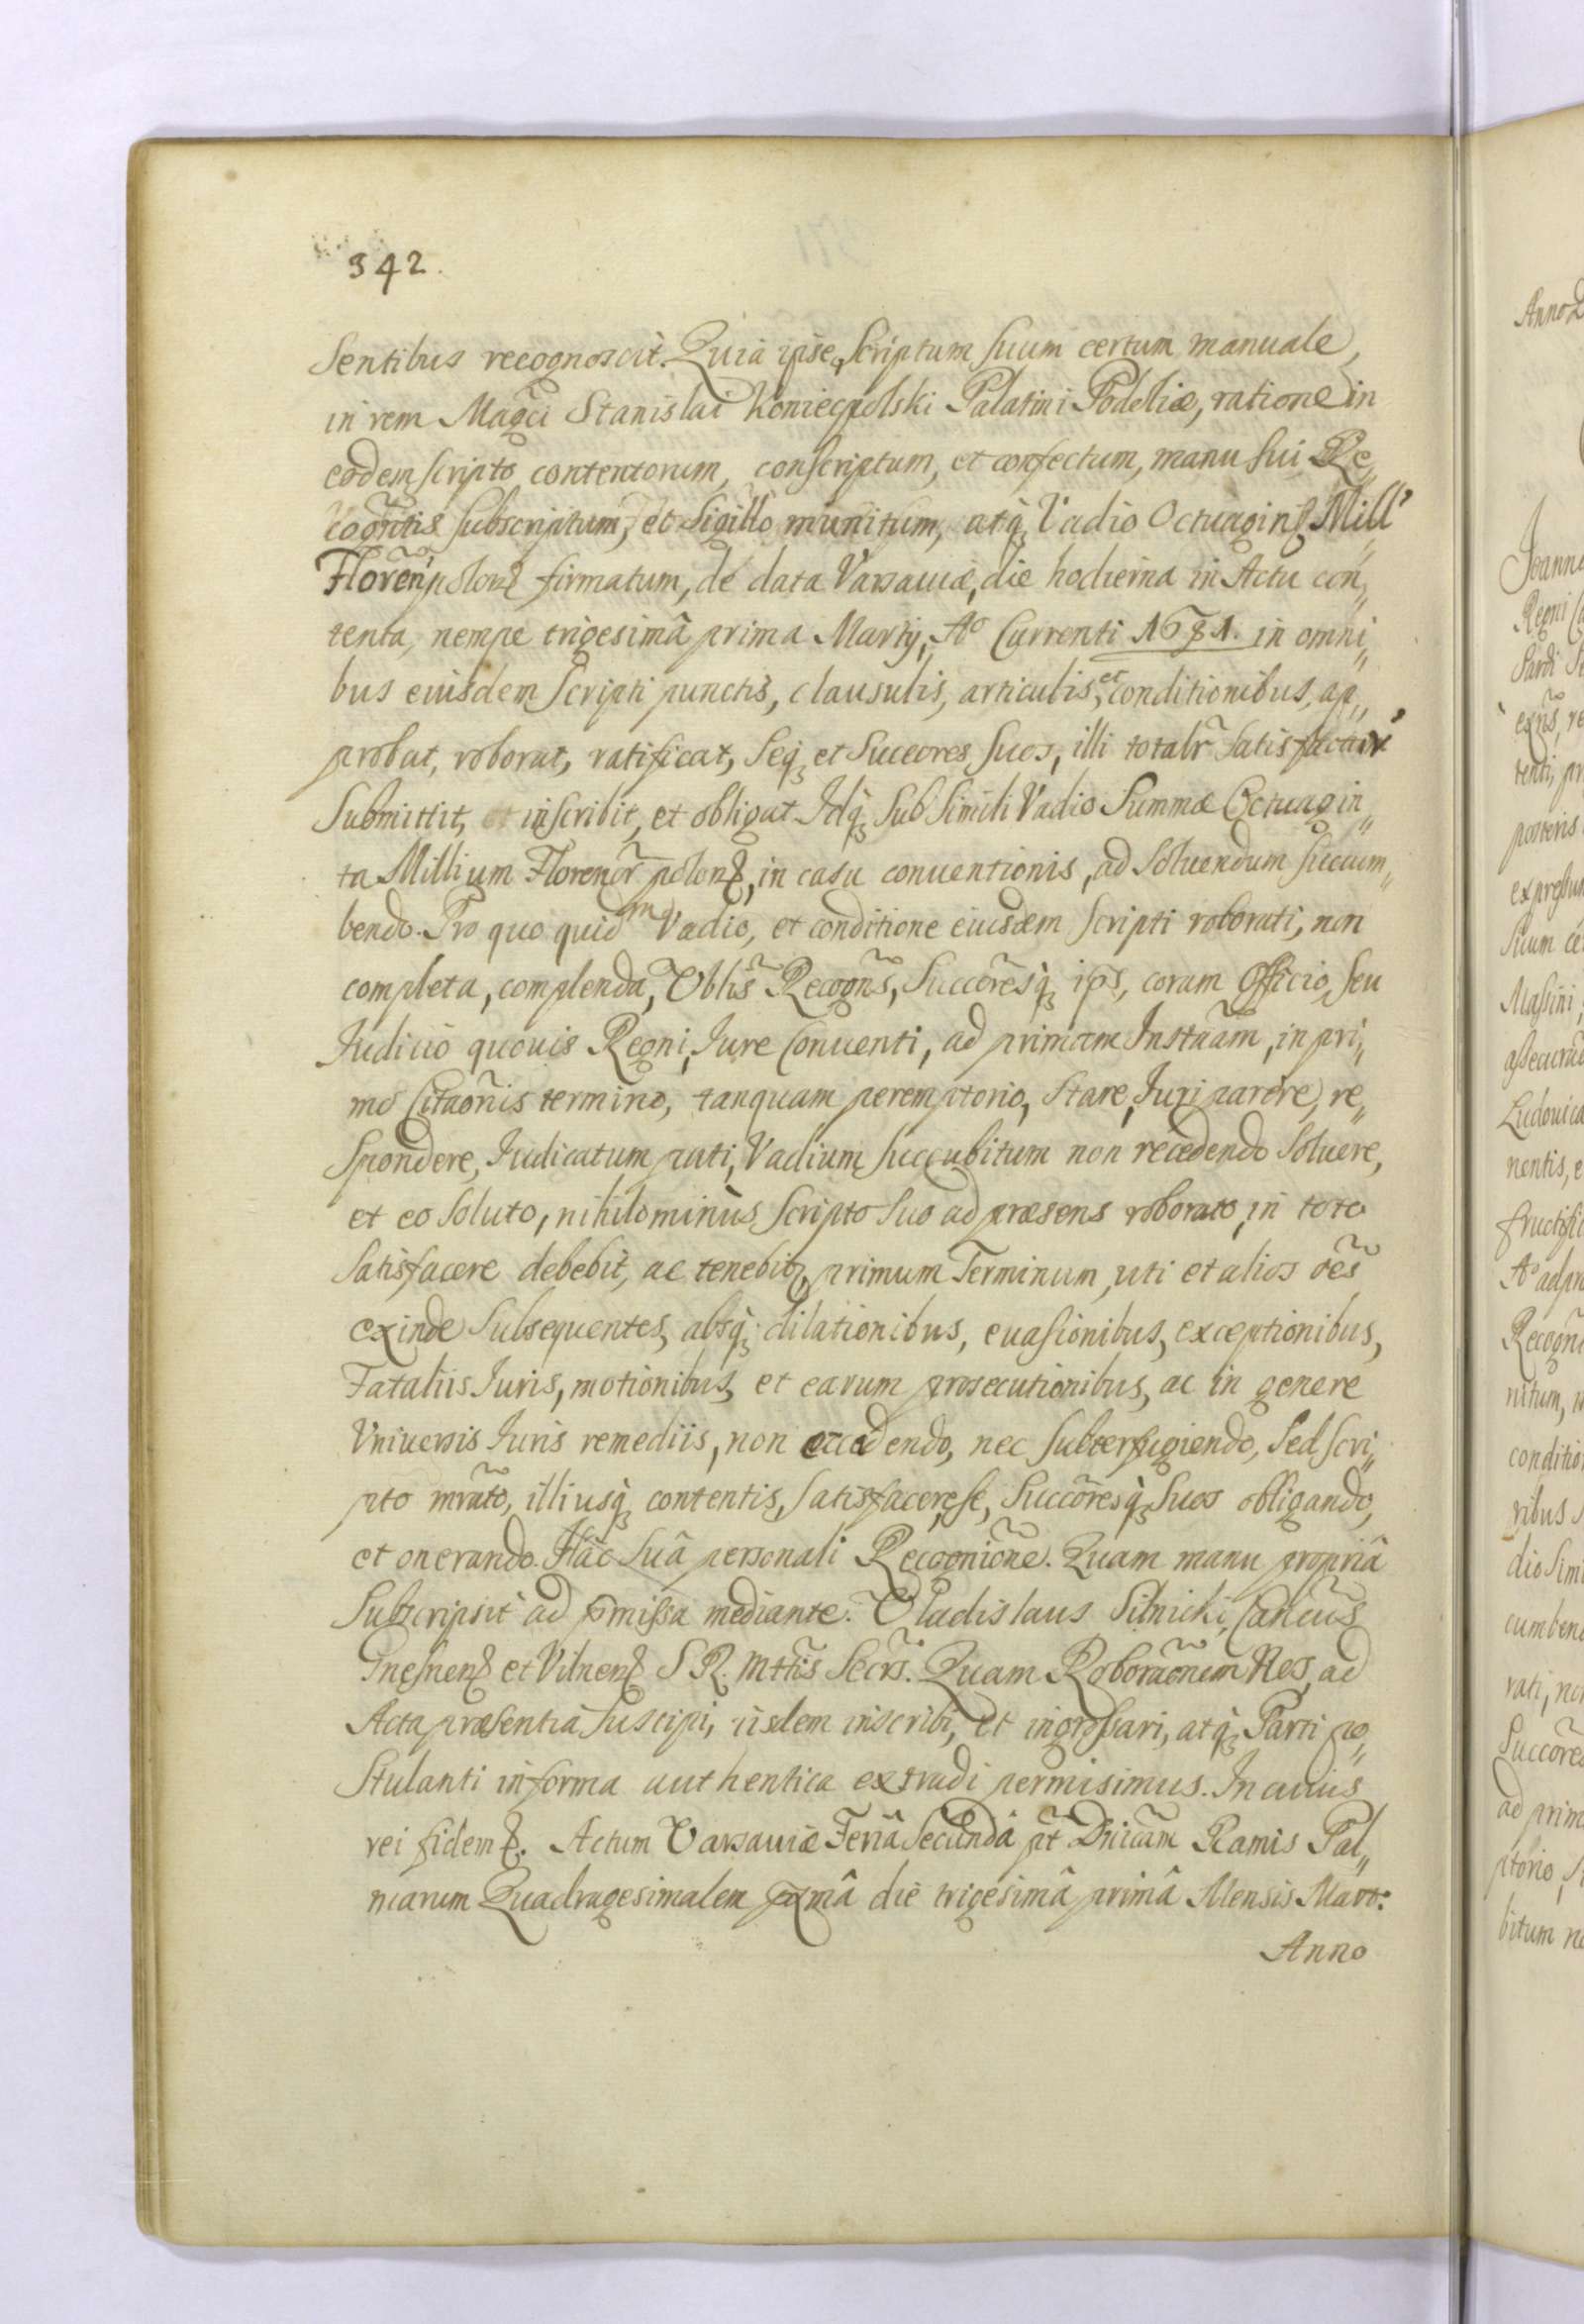 342.
Sentibus recognoscit. Quia ipse, Scriptum Suum certum manuale,
in rem Magci Stanislai Koniecpolski Palatini Podoliæ, ratione in
eodem scripto contentorum, conscriptum, et confectum, manu sui Re„
cogñtis subscriptum, et Sigillo munitum, atq́ Vadio Octuagint Mill'
Floreñ polon firmatum, de data Varsauiæ, die hodierna in Actu con„
tenta, nempe trigesimâ prima Martij, Aº Currenti 1681. in omni„
bus eiusdem Scripti punctis, clausulis, articulis, et conditionibus, ap„
probat, roborat, ratificat, Seq́ et Succores Suos, illi totalr̃ Satisfactur'
Submittit, inscribit, et obligat. Idq́ Sub Simili Vadio Summæ Octuagin„
ta Millium Florenor̃ polon, in casu conuentionis, ad Soluendum Succum„
bendo. Pro quo quidm Vadio, et conditione eiusdem scripti roborati, non
completa, complenda, Oblis̃ Recogñs, Succorẽsq́ ips, coram Officio, seu
Iudicio quouis Regni, Iure Conuenti, ad primam Instañam, in pri„
mo Citaõnis termino, tanquam peremptorio, Stare, Juri parere, re„
Spondere, Iudicatum pati, Vadium Succubitum non recedendo Soluere,
et eo Soluto, nihilominùs Scripto Suo ad præsens roborato, in toto
Satisfacere debebit, ac tenebit, primum Terminum, uti et alios oẽs
exinde Subsequentes, absq́ dilationibus, euasionibus, exceptionibus,
Fataliis Iuris, motionibus, et earum prosecutionibus, ac in genere
Vniuersis Iuris remediis, non excedendo, nec Subterfugiendo, Sed scri„
pto mrato, illiusq́ contentis, satisfacere, se, Succorẽsq́ Suos obligando,
et onerando. Hâc Suâ personali Recognione. Quam manu propriâ
Subscripsit ad pmissa mediante. Vladislaus Silnicki, Cancus
Gnesnen et Vilnen S R. Mttis Secrs. Quam Roboraõnem Nos, ad
Acta præsentia Suscipi, iisdem inscribi, et ingrossari, atq́ Parti po„
Stulanti in forma authentica extradi permisimus. In cuius
rei fidem. Actum Varsauiæ Feriâ Secundâ pt Dnicam Ramis Pal„
marum Quadragesimalem pxmâ die trigesimâ primâ Mensis Mart:
Anno